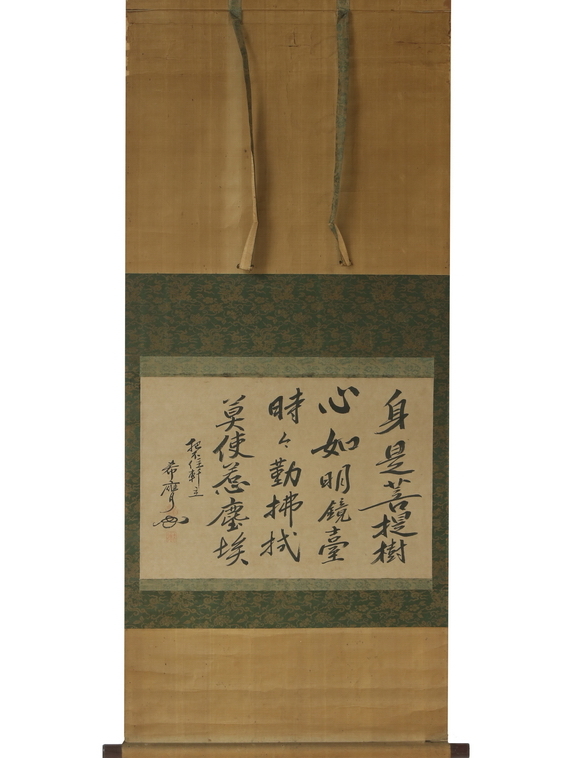 身是菩提樹
心如明鏡臺
時々勤拂拭
莫使惹塵埃
軒主
希膺